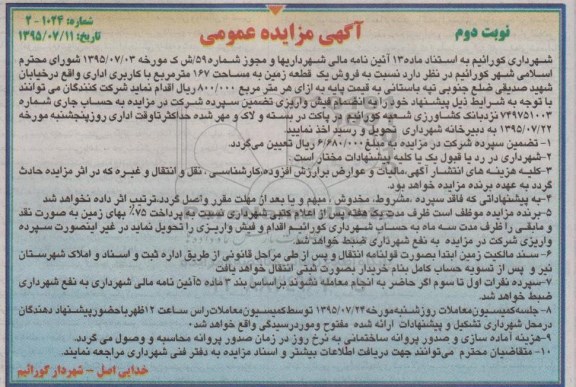 شماره: ۱۰۲۴ - ۲
تاریخ: ۱۳۹۵/۰۷/۱۱
آگهی مزایده عمومی
نوبت دوم
شهرداری کورائیم به استناد ماده۱۳ آئین نامه مالی شهرداریها و مجوز شماره۵۹/ش ک مورخه ۱۳۹۵/۰۷/۰۳ شورای محترم
اسلامی شهر کورائیم در نظر دارد نسبت به فروش یک قطعه زمین به مساحت ۱۶۷ مترمربع با کاربری اداری واقع درخیابان
شهید صدیقی ضلع جنوبی تپه باستانی به قیمت پایه به ازای هر متر مربع ۸۰۰/۰۰۰ ریال اقدام نماید شرکت کنندگان می توانند
با توجه به شرایط ذیل پیشنهاد خود را به انضمام فیش واریزی تضمین سپرده شرکت در مزایده به حساب جاری شماره
۷۴۹۷۵۱۰۰۳ نزدبانک کشاورزی شعبه کورائیم در پاکت در بسته و لاک و مهر شده حداکثرتاوقت اداری روزپنجشنبه مورخه
۱۳۹۵/۰۷/۲۲ به دبیرخانه شهرداری تحویل و رسید اخذ نمایید.
۱- تضمین سپرده شرکت در مزایده به مبلغ ۶/۶۸۰/۰۰۰ ریال تعیین می‌گردد.
۲-شهرداری در رد یا قبول یک یا کلیه پیشنهادات مختار است
۳-کلیه هزینه های انتشار آگهی،مالیات و عوارض برارزش افزوده،کارشناسی ، نقل و انتقال و غیره که در اثر مزایده حادث
گردد به عهده برنده مزایده خواهد بود.
۴-به پیشنهاداتی که فاقد سپرده ،مشروط، مخدوش ، مبهم و یا بعد از مهلت مقرر واصل گردد،ترتیب اثر داده نخواهد شد
۵-برنده مزایده موظف است ظرف مدت یک هفته پس از اعلام کتبی شهرداری نسبت به پرداخت ۷۵٪ بهای زمین به صورت نقد
و مابقی را ظرف مدت سه ماه به حساب شهرداری کورائیم اقدام و فیش واریزی را تحویل نماید در غیر اینصورت سپرده
واریزی شرکت در مزایده به نفع شهرداری ضبط خواهد شد.
۶-سند مالکیت زمین ابتدا بصورت قولنامه انتقال و پس از طی مراحل قانونی از طریق اداره ثبت و اسناد و املاک شهرستان
نیر و پس از تسویه حساب کامل بنام خریدار بصورت ثبتی انتقال خواهد یافت
۷-سپرده نفرات اول تا سوم اگر حاضر به انجام معامله نشوند براساس بند ۳ ماده ۵آئین نامه مالی شهرداری به نفع شهرداری
ضبط خواهد شد.
۸-جلسه‌کمیسیون‌معاملات روزشنبه‌مورخه۱۳۹۵/۰۷/۲۴ توسط‌کمیسیون‌معاملات‌راس ساعت ۱۲ظهرباحضورپیشنهاد دهندگان
درمحل شهرداری تشکیل و پیشنهادات ارائه شده مفتوح وموردرسیدگی واقع خواهد شد.
۹-هزینه آماده سازی و صدور پروانه ساختمانی به نرخ روز در زمان صدور پروانه محاسبه و وصول می گردد.
۱۰- متقاضیان محترم می‌توانند جهت دریافت اطلاعات بیشتر و اسناد مزایده به دفتر فنی شهرداری مراجعه نمایند.
خدایی اصل - شهردار کورائیم